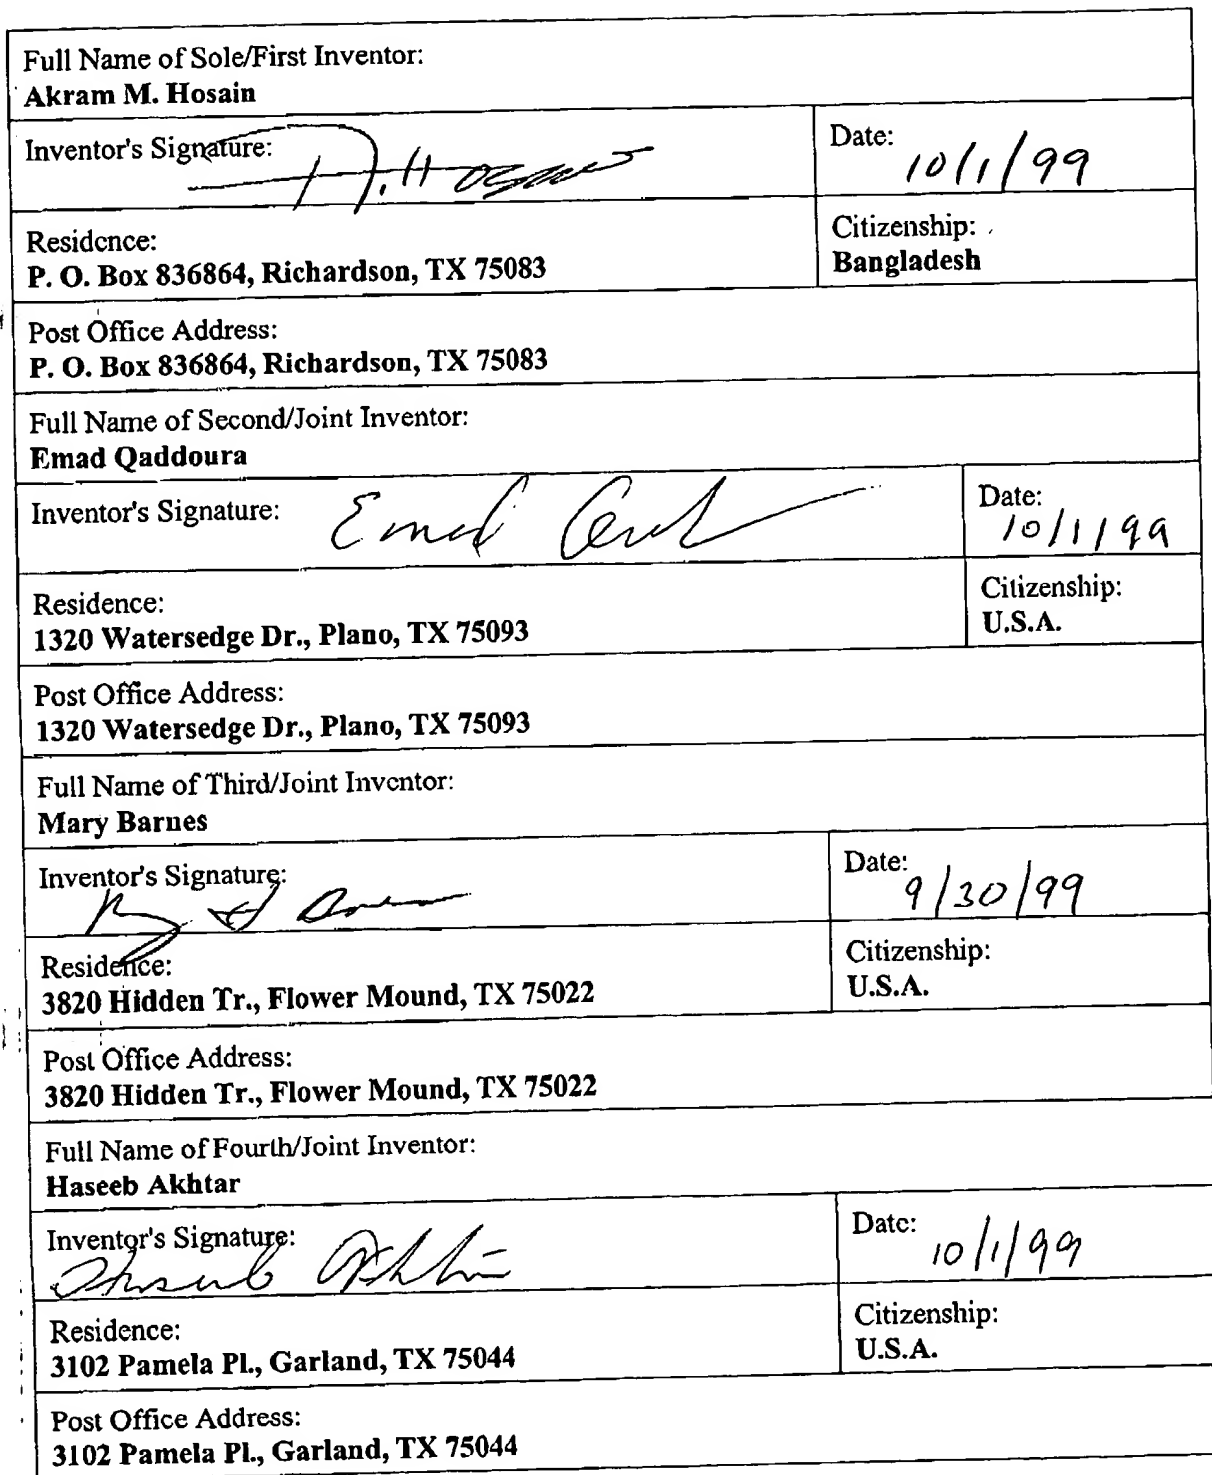 Full Name of Sole/First Inventor:
Akram M. Hosain
Inventor's Signature:
Date:
10/1/99
Residence:
P. O. Box 836864, Richardson, TX 75083
Citizenship:
Bangladesh
Post Office Address:
P. O. Box 836864, Richardson, TX 75083
Full Name of Second/Joint Inventor:
Emad Qaddoura
Inventor's Signature: Emad
Date:
10/1/99
Residence:
1320 Watersedge Dr., Plano, TX 75093
Citizenship:
U.S.A.
Post Office Address:
1320 Watersedge Dr., Plano, TX 75093
Full Name of Third/Joint Inventor:
Mary Barnes
Inventor's Signature:
Date:
9/30/99
Residence:
3820 Hidden Tr., Flower Mound, TX 75022
Citizenship:
U.S.A.
Post Office Address:
3820 Hidden Tr., Flower Mound, TX 75022
Full Name of Fourth/Joint Inventor:
Haseeb Akhtar
Inventor's Signature:
Date:
10/1/99
Residence:
3102 Pamela Pl., Garland, TX 75044
Citizenship:
U.S.A.
Post Office Address:
3102 Pamela Pl., Garland, TX 75044